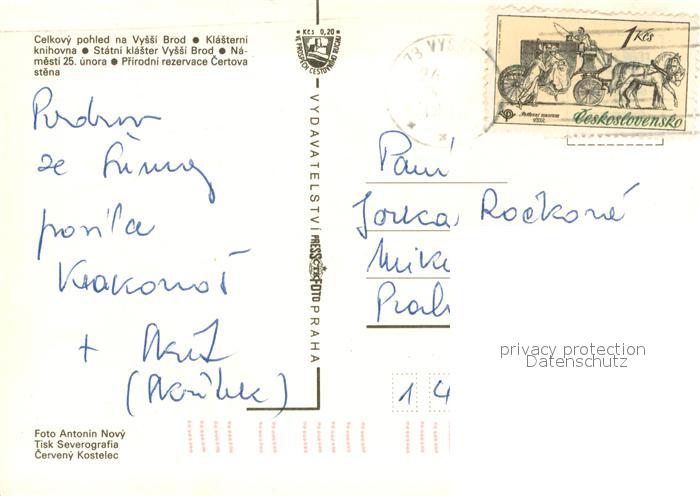 Celkový pohled na Vyšší Brod ● Klášterní
knihovna ● Státní klášter Vyšší Brod ● Ná-
městí 25. února ● Přírodní rezervace Čertova
stěna
Kčs 0,20
VE PROSPĚCH CESTOVNÍHO RUCHU
1 Kčs
Poštovní muzeum
Československo
VYDAVATELSTVÍ PRESSFOTO PRAHA
Pozdrav
ze Šumavy
posílá
Krakonoš
+
Paní
Ročkové
Praha
1 4
privacy protection
Datenschutz
Foto Antonín Nový
Tisk Severografia
Červený Kostelec